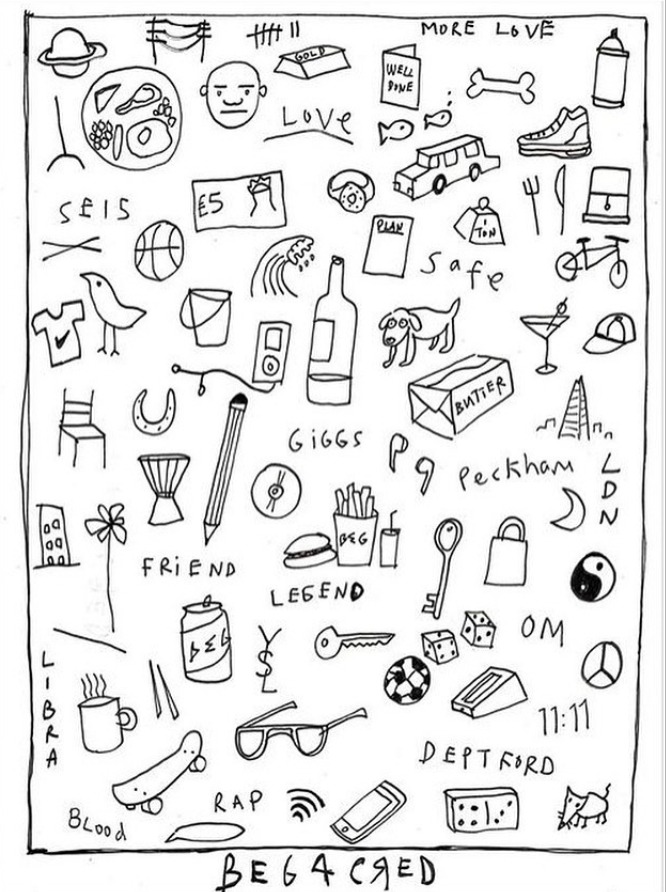 MORE LOVE
GOLD
WELL
DONE
LOVe
SEIS
£5
PLAN
1
TON
Safe
BUTTER
GiGGS
Peckham
LDN
BEG
FRiEND
LEGEND
BEG
YSL
OM
LIBRA
11:11
DEPTFORD
RAP
BLood
BEG4CRED